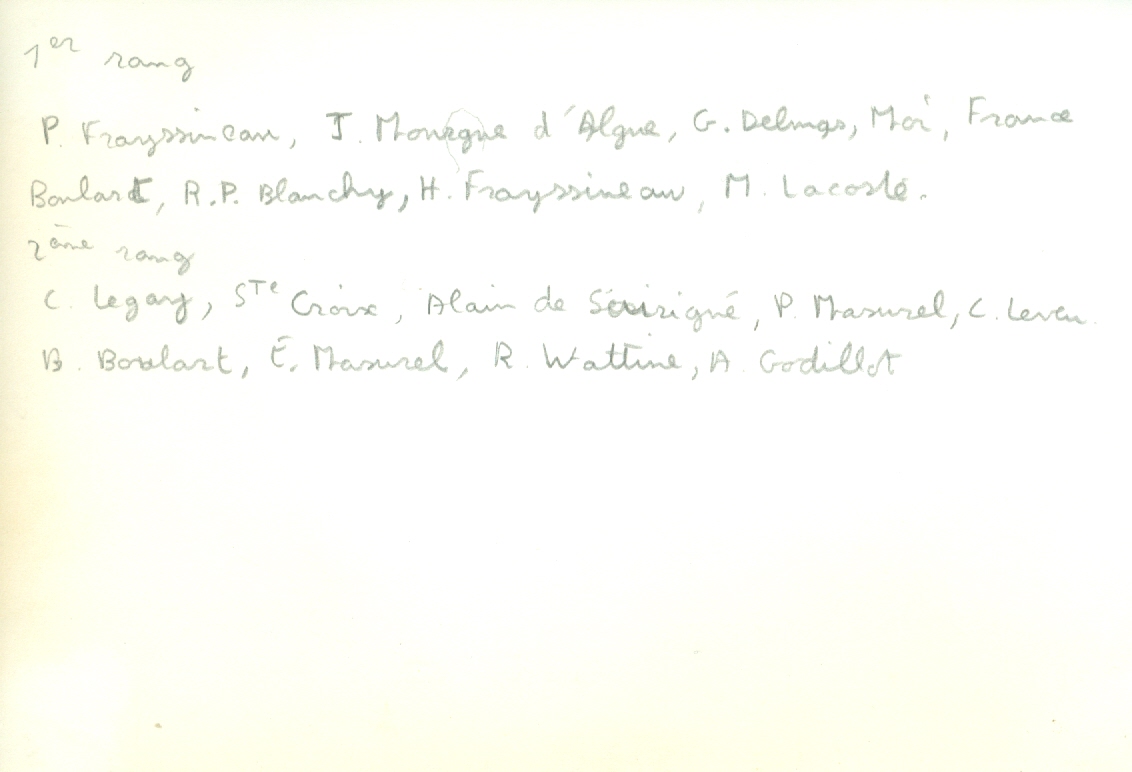 1er rang
P. Frayssineau, J. Mourgue d'Algue, G. Delmas, Moi, France
Boulart, R.P. Blanchy, H. Frayssineau, M. Lacoste.
2ème rang
C. Legay, STe Croix, Alain de Sairigné, P. Masurel, C. Leven
B. Boulart, É. Masurel, R. Wattine, A. Godillot